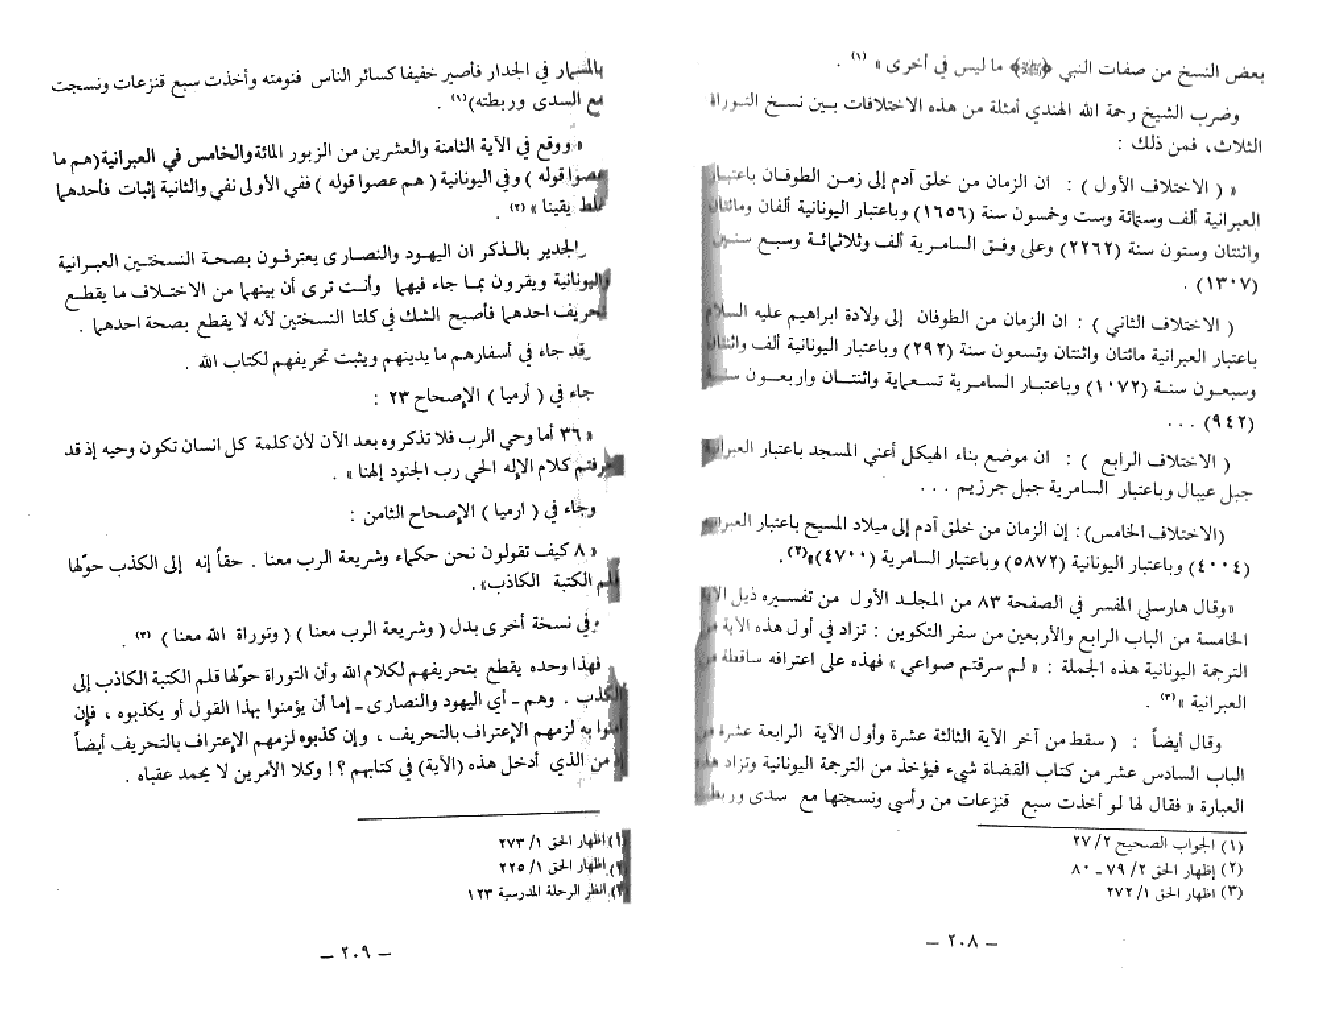 بعض النسخ من صفات النبي ﴿ﷺ﴾ ما ليس في أخرى » (١) .
وضرب الشيخ رحمة الله الهندي أمثلة من هذه الاختلافات بين نسخ التوراة
الثلاث، فمن ذلك :
« ( الاختلاف الأول ) : ان الزمان من خلق آدم إلى زمن الطوفان باعتبار
العبرانية ألف وستمائة وست وخمسون سنة (١٦٥٦) وباعتبار اليونانية ألفان ومائتان
واثنتان وستون سنة (٢٢٦٢) وعلى وفق السامرية ألف وثلاثمائة وسبع سنين
(١٣٠٧) .
( الاختلاف الثاني ) : ان الزمان من الطوفان إلى ولادة ابراهيم عليه السلام
باعتبار العبرانية مائتان واثنتان وتسعون سنة (٢٩٢) وباعتبار اليونانية ألف واثنتان
وسبعون سنة (١٠٧٢) وباعتبار السامرية تسعماية واثنتان واربعون سنة
(٩٤٢) ...
( الاختلاف الرابع ) : ان موضع بناء الهيكل أعني المسجد باعتبار العبرانية
جبل عيبال وباعتبار السامرية جبل جرزيم ...
(الاختلاف الخامس): إن الزمان من خلق آدم إلى ميلاد المسيح باعتبار العبرانية
(٤٠٠٤) وباعتبار اليونانية (٥٨٧٢) وباعتبار السامرية (٤٧٠٠)»(٢).
«وقال هارسلي المفسر في الصفحة ٨٣ من المجلد الأول من تفسيره ذيل الآية
الخامسة من الباب الرابع والأربعين من سفر التكوين : تزاد في أول هذه الآية من
الترجمة اليونانية هذه الجملة : « لم سرقتم صواعي » فهذه على اعترافه ساقطة من
العبرانية »(٣) .
وقال أيضاً : ( سقط من آخر الآية الثالثة عشرة وأول الآية الرابعة عشرة من
الباب السادس عشر من كتاب القضاة شيء فيؤخذ من الترجمة اليونانية وتزاد هذه
العبارة « فقال لها لو أخذت سبع قنزعات من رأسي ونسجتها مع سدى وربطتها
(١) الجواب الصحيح ٢/ ٢٧
(٢) إظهار الحق ٢/ ٧٩ ـ ٨٠
(٣) اظهار الحق ١/ ٢٧٢
– ٢٠٨ –
بالمسمار في الجدار فأصير خفيفا كسائر الناس فنومته وأخذت سبع قنزعات ونسجت
مع السدى وربطته)(١) .
« ووقع في الآية الثامنة والعشرين من الزبور المائة والخامس في العبرانية (هم ما
عصوا قوله ) وفي اليونانية ( هم عصوا قوله ) ففي الأولى نفي والثانية إثبات فأحدهما
غلط يقينا »(٢) .
والجدير بالذكر ان اليهود والنصارى يعترفون بصحة النسختين العبرانية
واليونانية ويقرون بما جاء فيهما وأنت ترى أن بينهما من الاختلاف ما يقطع
بتحريف احدهما فأصبح الشك في كلتا النسختين لأنه لا يقطع بصحة احدهما .
وقد جاء في أسفارهم ما يدينهم ويثبت تحريفهم لكتاب الله .
جاء في ( أرميا ) الإصحاح ٢٣ :
« ٣٦ أما وحي الرب فلا تذكروه بعد الآن لأن كلمة كل انسان تكون وحيه إذ قد
حرفتم كلام الإله الحي رب الجنود إلهنا » .
وجاء في ( ارميا ) الإصحاح الثامن :
« ٨ كيف تقولون نحن حكماء وشريعة الرب معنا . حقاً إنه إلى الكذب حوّلها
قلم الكتبة الكاذب» .
وفي نسخة أخرى بدل ( وشريعة الرب معنا ) ( وتوراة الله معنا ) (٣) .
فهذا وحده يقطع بتحريفهم لكلام الله وأن التوراة حوّلها قلم الكتبة الكاذب إلى
الكذب . وهم ـ أي اليهود والنصارى ـ إما أن يؤمنوا بهذا القول أو يكذبوه ، فإن
آمنوا به لزمهم الإعتراف بالتحريف ، وإن كذبوه لزمهم الإعتراف بالتحريف أيضاً
من الذي أدخل هذه (الآية) في كتابهم ؟! وكلا الأمرين لا يحمد عقباه .
(١) اظهار الحق ١/ ٢٧٣
(٢) اظهار الحق ١/ ٢٢٥
(٣) انظر الرحلة المدرسية ١٢٣
– ٢٠٩ –